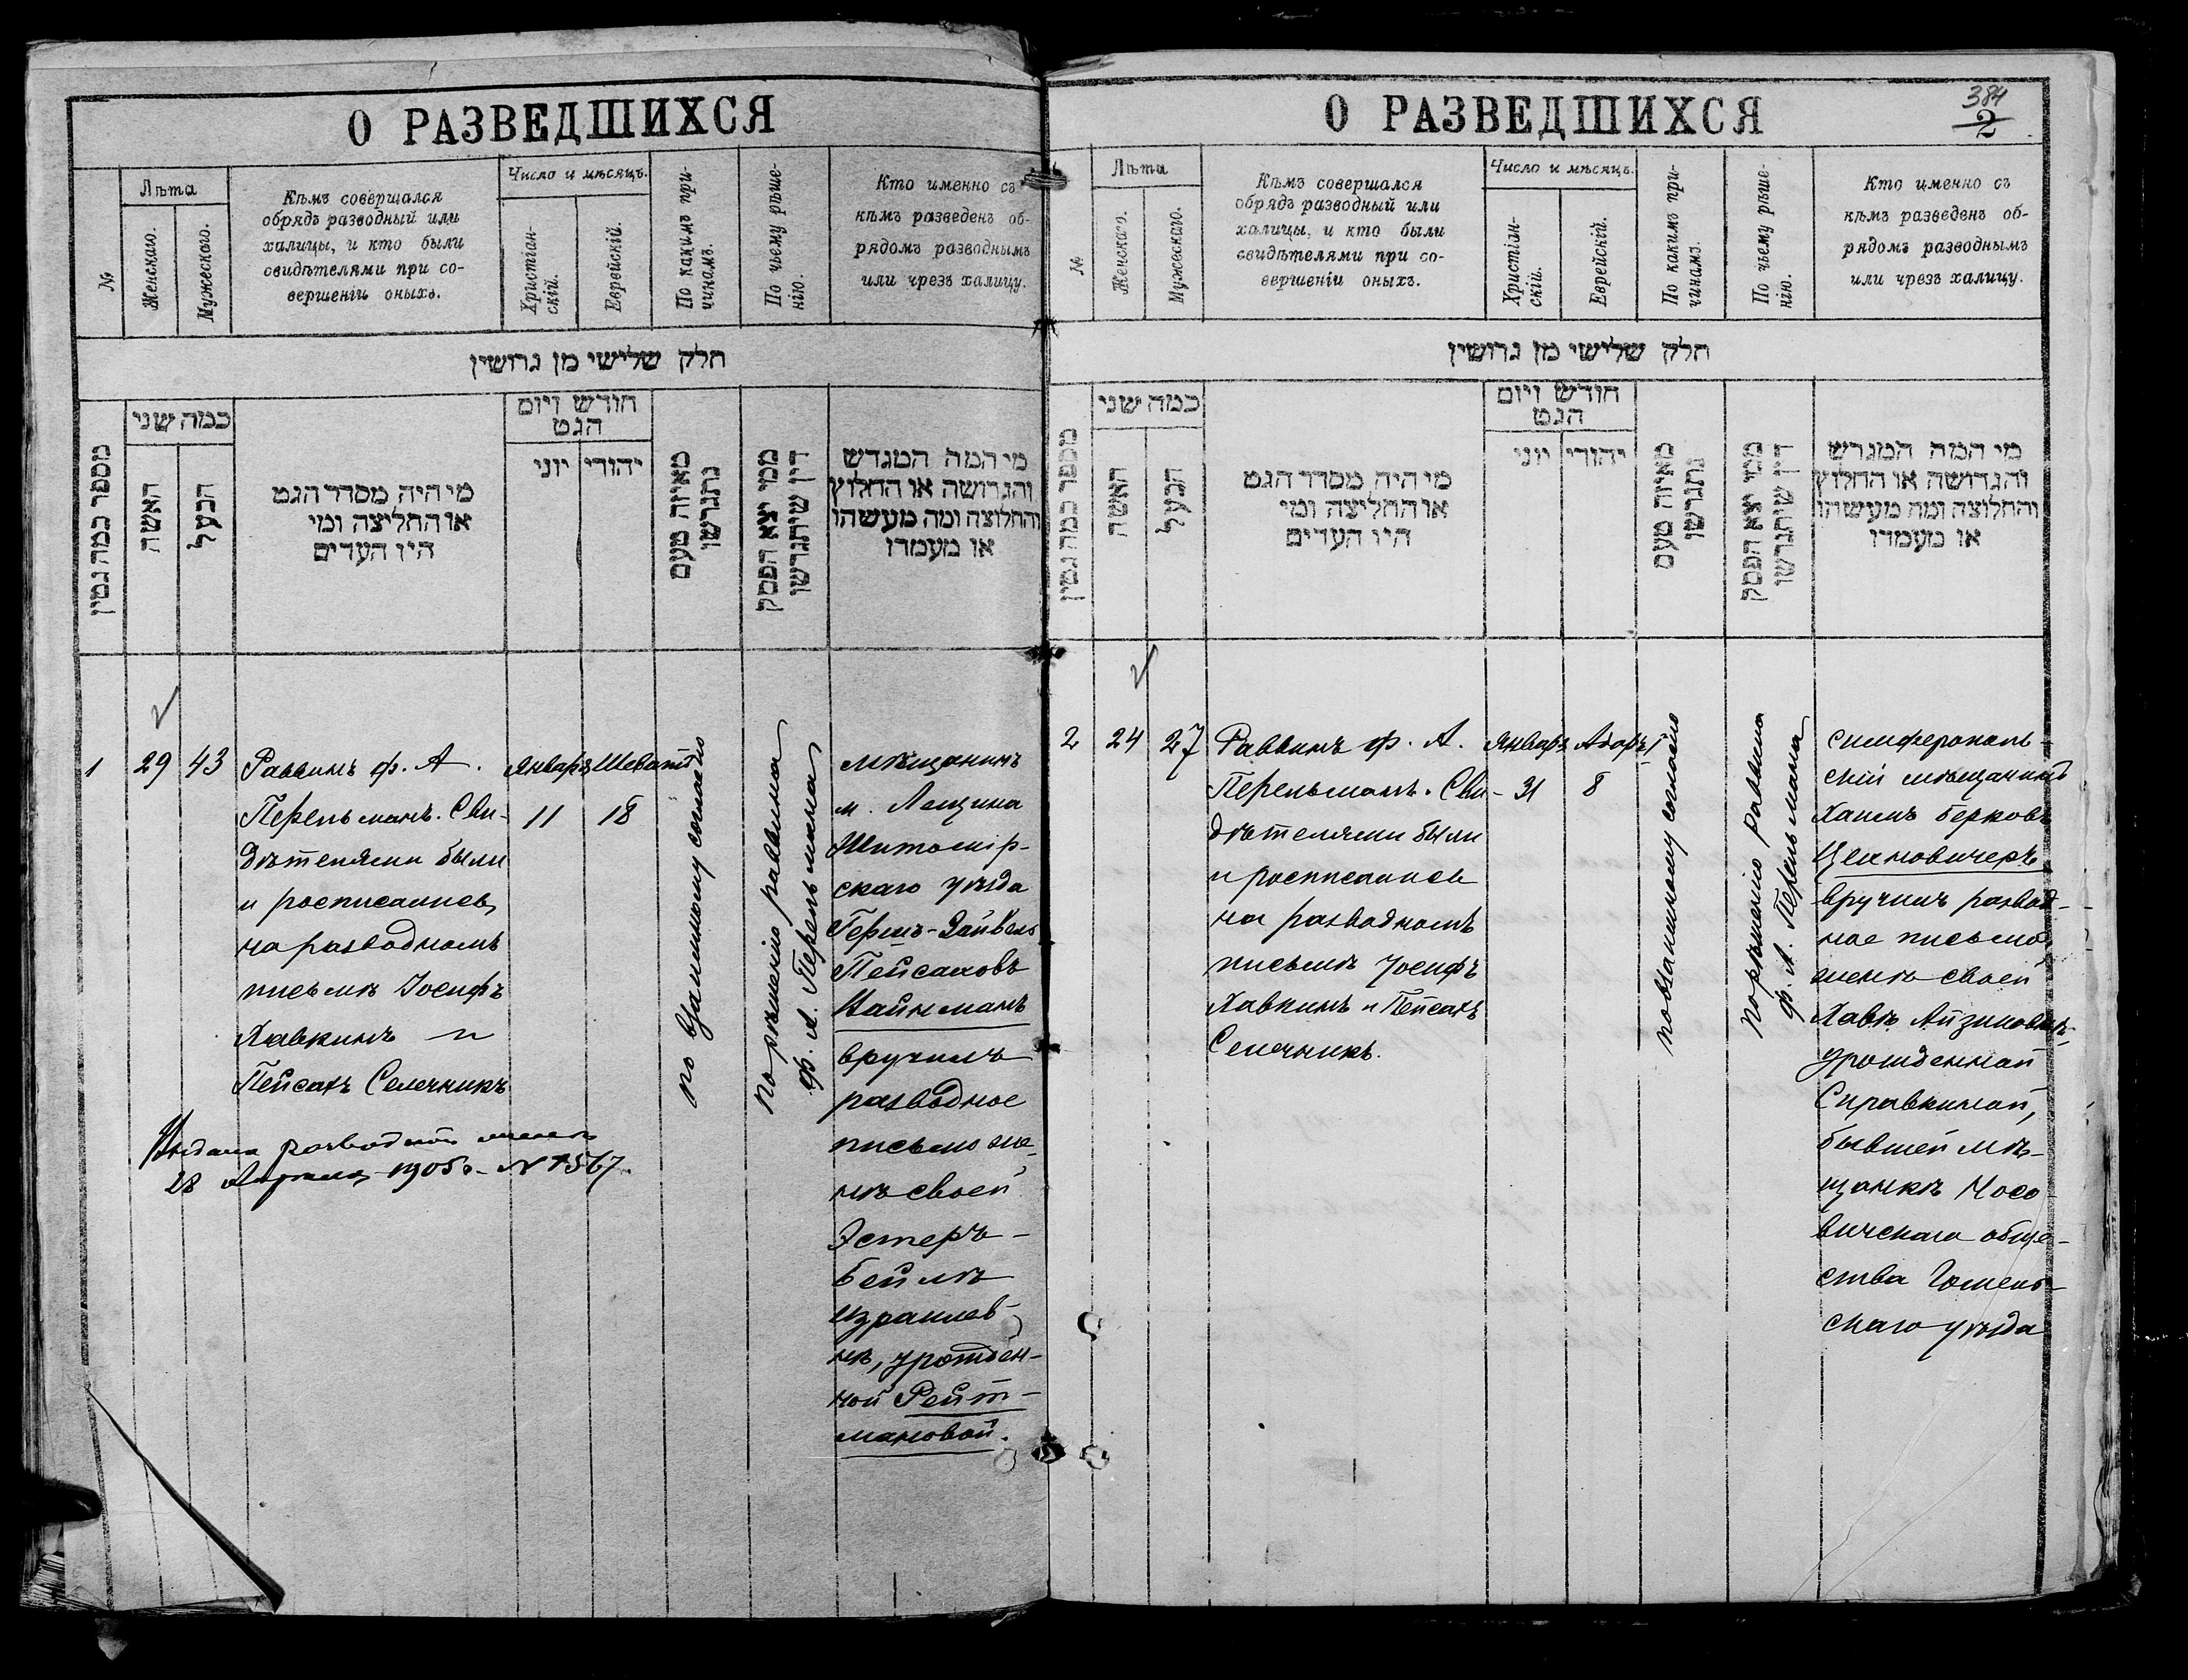 О РАЗВЕДШИХСЯ
№
Лѣта
Женскаго.
Мужескаго.
Кѣмъ совершался
обрядъ разводный или
халицы, и кто были
свидѣтелями при со-
вершеніи оныхъ.
Число и мѣсяцъ.
Христіан-
скій.
Еврейскій.
По какимъ при-
чинамъ.
По чьему рѣше-
нію.
Кто именно съ
кѣмъ разведенъ об-
рядомъ разводнымъ
или чрезъ халицу.
חלק שלישי מן גרושין
מספר כמה גטין
כמה שני
האשה
הבעל
מי היה מסדר הגט
או החליצה ומי
היו העדים
חודש ויום
הגט
יהודי יוני
מאיזה טעם
נתגרשו
ממי יצא הפסק
דין שיתגרשו
מי המה המגרש
והגרושה או החלוץ
והחלוצה ומה מעשהו
או מעמדו
1
29
43
Раввинъ ф. А.
Перельманъ. Сви-
дѣтелями были
и росписались
на разводномъ
письмѣ Іосифъ
Хавкинъ и
Пейсахъ Селечникъ
Январь
11
Шеватъ
18
по взаимному согласію
по рѣшенію раввина
ф. А. Перельмана
мѣщанинъ
м. Лещина
Житомір-
скаго уѣзда
Гершъ-Зайвель
Пейсаховъ
Найнманъ
вручилъ
разводное
письмо же-
нѣ своей
Эстеръ-
Бейлѣ
Израилев-
нѣ, урожден-
ной Рейт-
мановой.
28 Апрѣля 1905 г. № 1567.
О РАЗВЕДШИХСЯ
384
2
№
Лѣта
Женскаго.
Мужескаго.
Кѣмъ совершался
обрядъ разводный или
халицы, и кто были
свидѣтелями при со-
вершеніи оныхъ.
Число и мѣсяцъ.
Христіан-
скій.
Еврейскій.
По какимъ при-
чинамъ.
По чьему рѣше-
нію.
Кто именно съ
кѣмъ разведенъ об-
рядомъ разводнымъ
или чрезъ халицу.
חלק שלישי מן גרושין
מספר כמה גטין
כמה שני
האשה
הבעל
מי היה מסדר הגט
או החליצה ומי
היו העדים
חודש ויום
הגט
יהודי יוני
מאיזה טעם
נתגרשו
ממי יצא הפסק
דין שיתגרשו
מי המה המגרש
והגרושה או החלוץ
והחלוצה ומה מעשהו
או מעמדו
2
24
27
Раввинъ ф. А.
Перельманъ. Сви-
дѣтелями были
и росписались
на разводномъ
письмѣ Іосифъ
Хавкинъ и Пейсахъ
Селечникъ.
Январь
31
Адаръ I
8
по взаимному согласію
по рѣшенію раввина
ф. А. Перельмана
симферополь-
скій мѣщанинъ
Хаимъ Берковъ
Цехновичеръ
вручилъ развод-
ное письмо
женѣ своей
Хавѣ Айзиковнѣ
урожденной
Справкиной,
бывшей мѣ-
щанкѣ Носо-
вичскаго обще-
ства Гомель-
скаго уѣзда